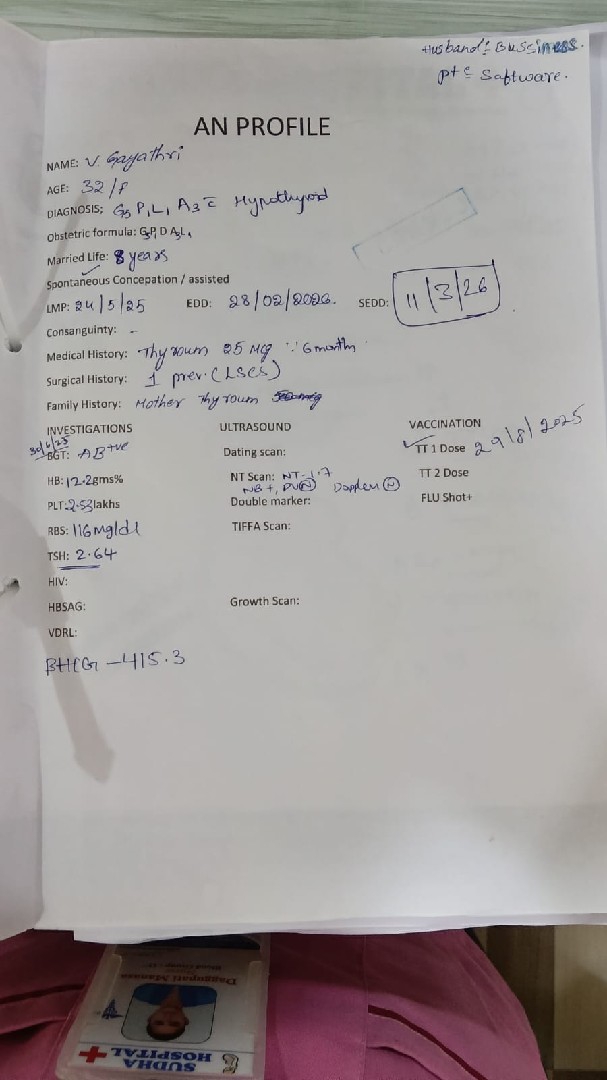 Husband: Bussiness.
pt c̄ Saftware.
AN PROFILE
NAME: V. Gayathri
AGE: 32/F
DIAGNOSIS: G5 P1 L1 A3 c̄ Hypothyroid
Obstetric formula: G5P1D A3L1
Married Life: 8 years
Spontaneous Concepation / assisted
LMP: 24/5/25 EDD: 28/02/2026. SEDD: 11/3/26
Consanguinty: -
Medical History: Thyroum 25 Mg ∵ 6 month
Surgical History: 1 prev. (LSCS)
Family History: Mother Thyroum
INVESTIGATIONS ULTRASOUND VACCINATION
30/6/25
BGT: AB+ve Dating scan: TT 1 Dose 29/8/2025
HB: 12.2gms% NT Scan: NT-1.7 TT 2 Dose
NB+, DV(N) Doppler (N)
PLT:2.53lakhs Double marker: FLU Shot+
RBS: 116mg/dl TIFFA Scan:
TSH: 2.64
HIV:
HBSAG: Growth Scan:
VDRL:
BHCG - 415.3
Daggupati Manasa
SUDHA
HOSPITAL